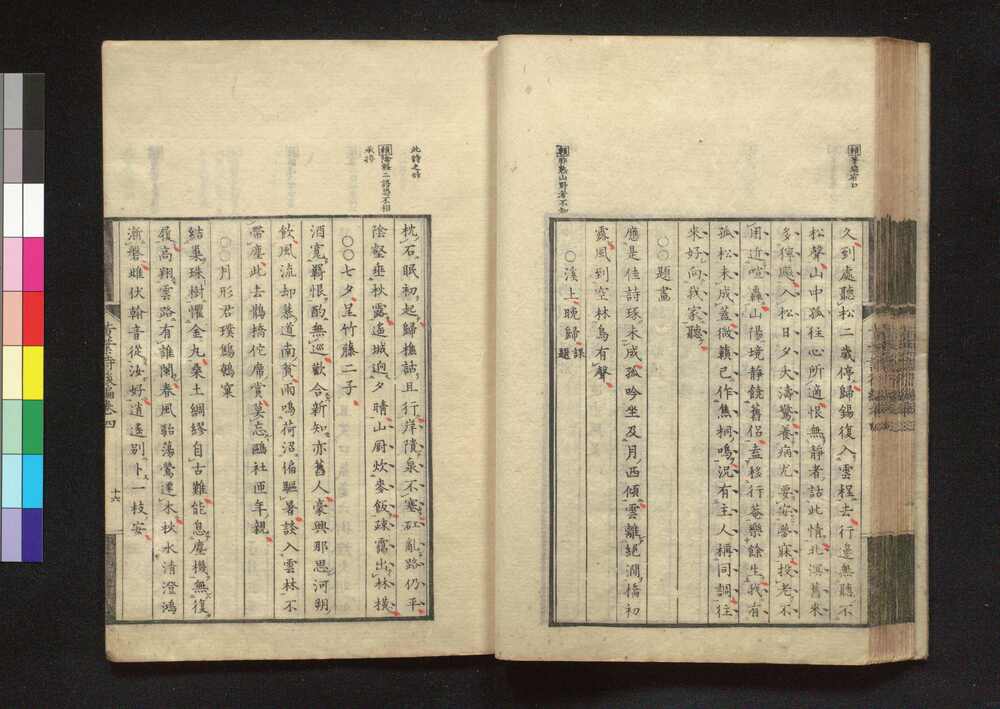 久到處聽松二歳停歸錫復入雲程去行邊無聽不
松聲山中孤往心所適恨無靜者話此情北溟舊來
多獰飈入松日夕失濤驚養病尤要安夢寐投老不
用近喧轟山陽境靜饒舊侶盍移行菴樂餘生我有
孤松未成蓋微籟已作焦桐鳴況有主人稱同調往
來好向我家聽
○○題畫
應是佳詩琢未成孤吟坐及月西傾雲離絕澗橋初
露風到空林鳥有聲
○溪上晚歸 課題
枕石眠初起歸樵話且行岸隤泉不塞矼亂路仍平
陰壑垂秋露遥城逈夕晴山厨炊麥飯疎靄出林橫
○○七夕呈竹藤二子
酒寬羇恨酌無巡歡合新知亦舊人豪興那思河朔
飲風流却慕道南貧雨鳴荷沼偏驅暑談入雲林不
帶塵此去鵲橋佗席賞莫忘鷗社匝年親
○○月形君璞鷦鷯窠
結巢珠樹懼金丸桑土綢繆自古難能息塵機無復
履高翔雲路有誰闌春風駘蕩鶯遷木秋水清澄鴻
漸磐雌伏翰音從汝好逍遥別卜一枝安
此詩之
賴 陰壑二語恐不相
承接
十六